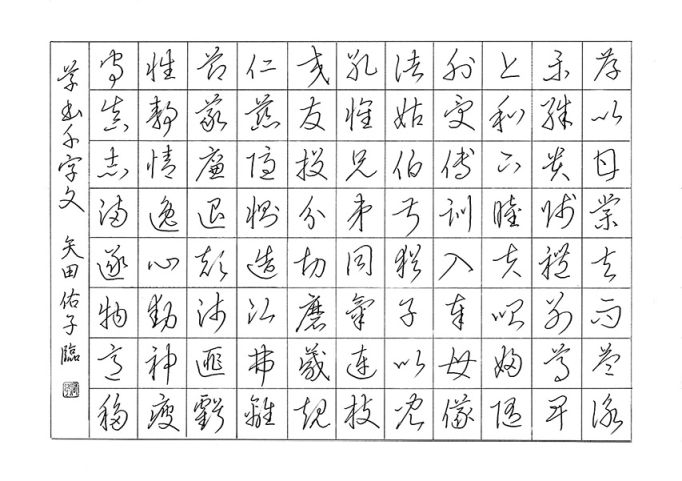 存以甘棠去而益詠
樂殊貴賤禮別尊卑
上和下睦夫唱婦隨
外受傅訓入奉母儀
諸姑伯叔猶子比兒
孔懷兄弟同氣連枝
交友投分切磨箴規
仁慈隱惻造次弗離
節義廉退顛沛匪虧
性靜情逸心動神疲
守真志滿逐物意移
草書千字文 矢田佑子臨